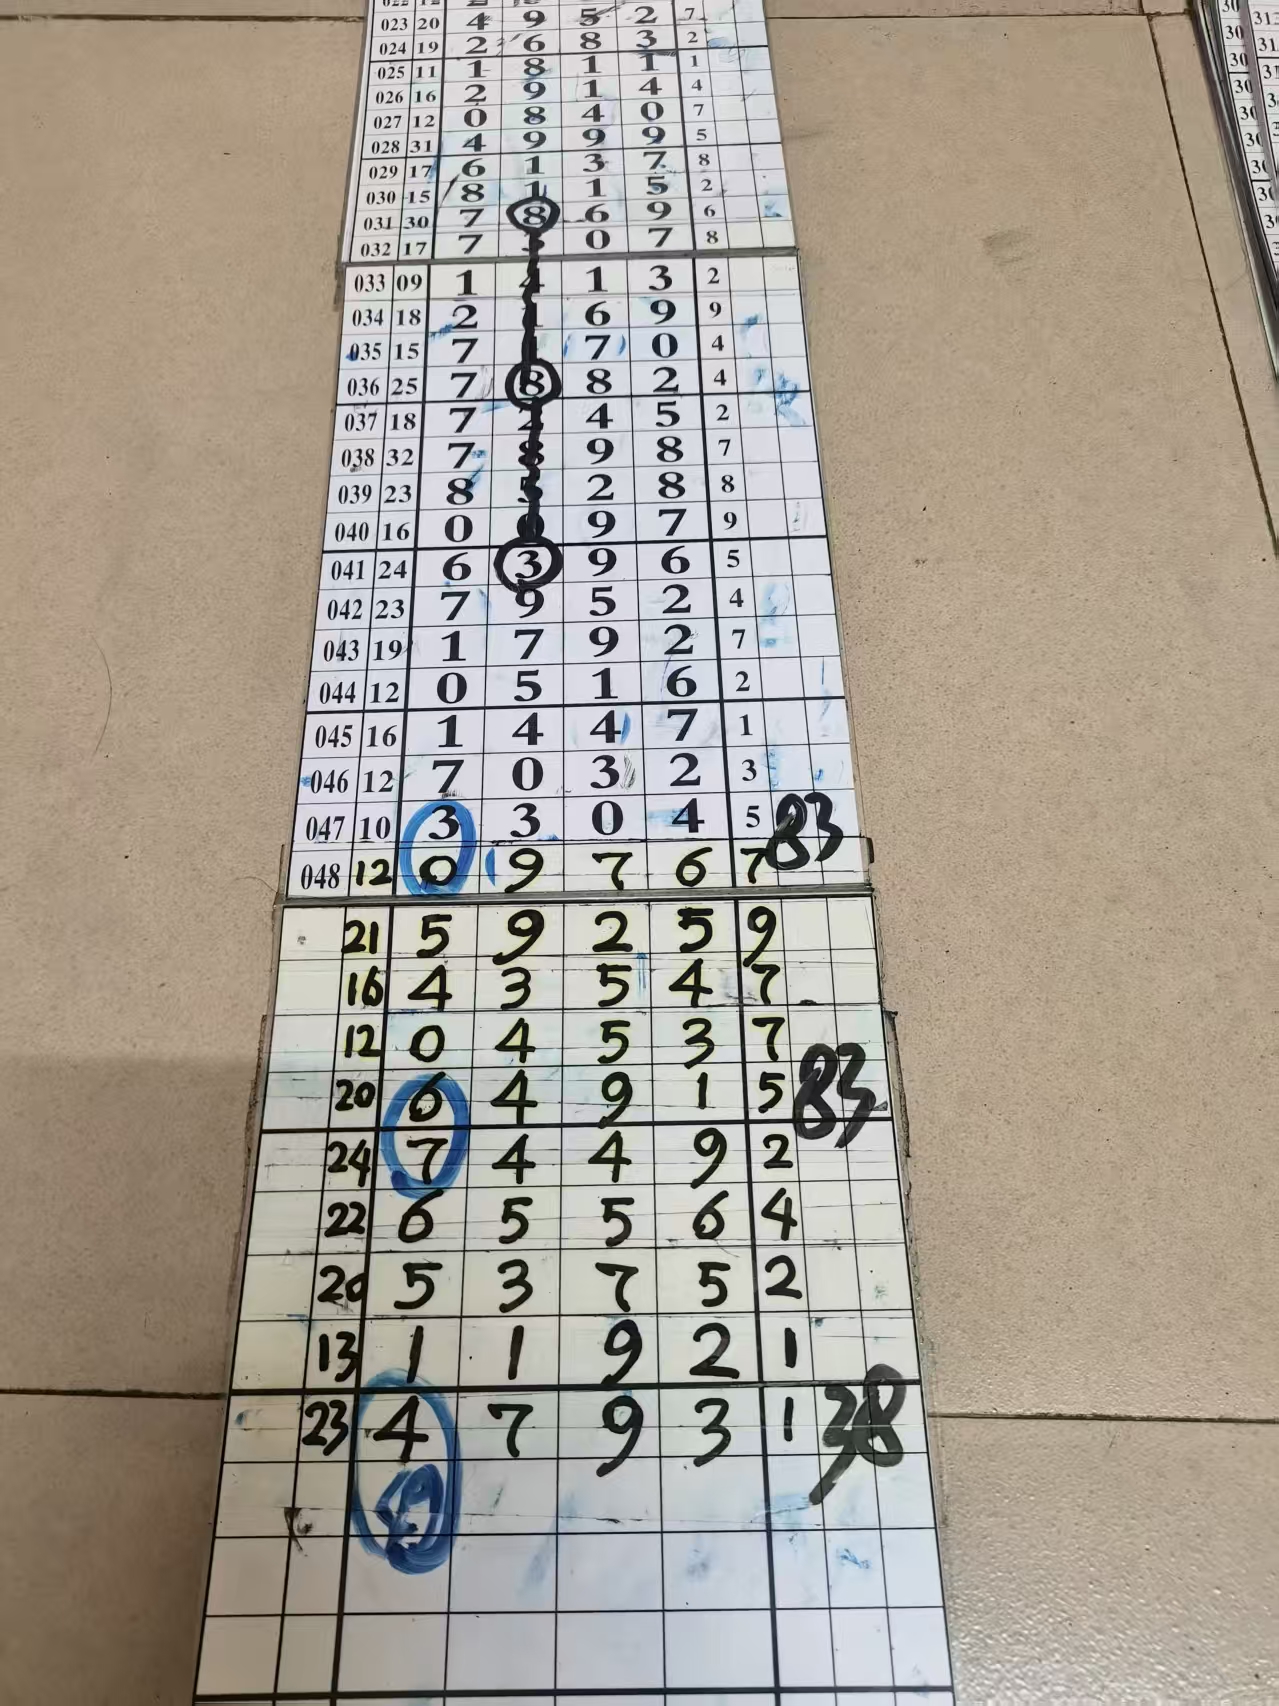 023 20 4 9 5 2 7
024 19 2 6 8 3 2
025 11 1 8 1 1 1
026 16 2 9 1 4 4
027 12 0 8 4 0 7
028 31 4 9 9 9 5
029 17 6 1 3 7 8
030 15 8 1 1 5 2
031 30 7 8 6 9 6
032 17 7 3 0 7 8
033 09 1 4 1 3 2
034 18 2 1 6 9 9
035 15 7 1 7 0 4
036 25 7 8 8 2 4
037 18 7 2 4 5 2
038 32 7 8 9 8 7
039 23 8 5 2 8 8
040 16 0 0 9 7 9
041 24 6 3 9 6 5
042 23 7 9 5 2 4
043 19 1 7 9 2 7
044 12 0 5 1 6 2
045 16 1 4 4 7 1
046 12 7 0 3 2 3
047 10 3 3 0 4 5 83
048 12 0 9 7 6 7
21 5 9 2 5 9
16 4 3 5 4 7
12 0 4 5 3 7
20 6 4 9 1 5 83
24 7 4 4 9 2
22 6 5 5 6 4
20 5 3 7 5 2
13 1 1 9 2 1
23 4 7 9 3 1 38